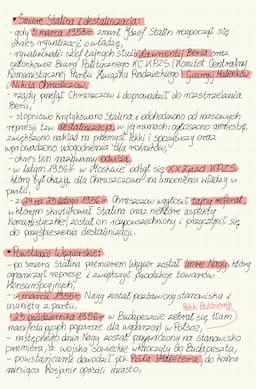 • Śmierć Stalina i destalinizacja:
- gdy 5 marca 1953r. zmarł Józef Stalin rozpoczął się
okres rywalizacji o władzę,
- rywalizowali: szef tajnych służb Ławrientij Beria oraz
członkowie Biura Politycznego KC KPZS (Komitet Centralny
Komunistycznej Partii Związku Radzieckiego) Gieorgij Malenkow
i Nikita Chruszczow,
- rządy przejął Chruszczow i doprowadził do rozstrzelania
Berii,
- stopniowo krytykowano Stalina i odchodzono od masowych
represji tzw. destalinizacja, w jej ramach: ogłoszono amnestię,
zwiększono nakład na przemysł lekki i spożywczy oraz
wprowadzono udogodnienia dla rolników,
- okres ten nazywamy odwilżą,
- w lutym 1956r. w Moskwie odbył się XX Zjazd KPZS,
który był okazją dla Chruszczowa na umocnienie władzy w
partii,
- z 24 na 25 lutego 1956r. Chruszczow wygłosił tajny referat,
w którym skrytykował Stalina oraz niektóre aspekty
komunistycznej został on rozpowszechniony i przyczynił się
do przyspieszenia destalinizacji.
• Powstanie Węgierskie:
- po śmierci Stalina premierem Węgier został Imre Nagy, który
ograniczył represje i zwiększył produkcję towarów
konsumpcyjnych,
- w marcu 1955r. Nagy został pozbawiony stanowiska i
usunięty z partii,
- 23 października 1956r. w Budapeszcie zebrał się tłum
manifestujących poparcie dla wydarzeń w Polsce,
- następnego dnia Nagy został przywrócony na stanowisko
premiera, a wojska sowieckie wkroczyły do Budapesztu,
- powstańcami dowodził płk Pála Malétera, do końca
miesiąca Rosjanie opuścili miasto,